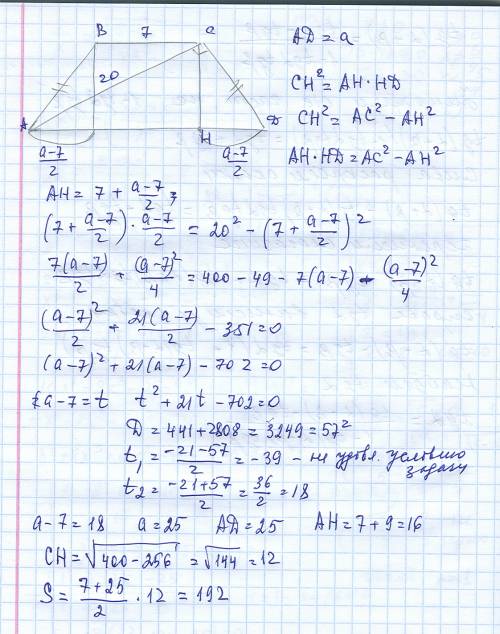 B 7 C
20
A H D
(a-7)/2 (a-7)/2
AD = a
CH² = AH · HD
CH² = AC² - AH²
AH·HD = AC² - AH²
AH = 7 + (a-7)/2 ;
(7 + (a-7)/2) · (a-7)/2 = 20² - (7 + (a-7)/2)²
7(a-7)/2 + (a-7)²/4 = 400 - 49 - 7(a-7) - (a-7)²/4
(a-7)²/2 + 21(a-7)/2 - 351 = 0
(a-7)² + 21(a-7) - 702 = 0
a-7 = t t² + 21t - 702 = 0
D = 441 + 2808 = 3249 = 57²
t₁ = (-21-57)/2 = -39 - не удовл. условию
задачи
t₂ = (-21+57)/2 = 36/2 = 18
a-7 = 18 a = 25 AD = 25 AH = 7 + 9 = 16
CH = √(400 - 256) = √144 = 12
S = (7+25)/2 · 12 = 192